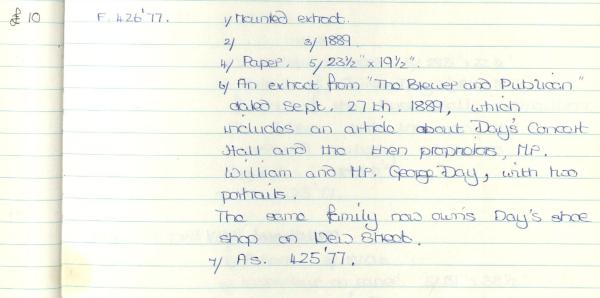 £10 F.426'77. 1/ Mounted extract.
2/ 3/ 1889.
4/ Paper. 5/ 23½" x 19½".
6/ An extract from "The Brewer and Publican"
dated Sept. 27th. 1889, which
includes an article about Day's Concert
Hall and the then proprietors, Mr.
William and Mr. George Day, with two
portraits.
The same family now owns Day's shoe
shop on New Street.
7/ As. 425'77.